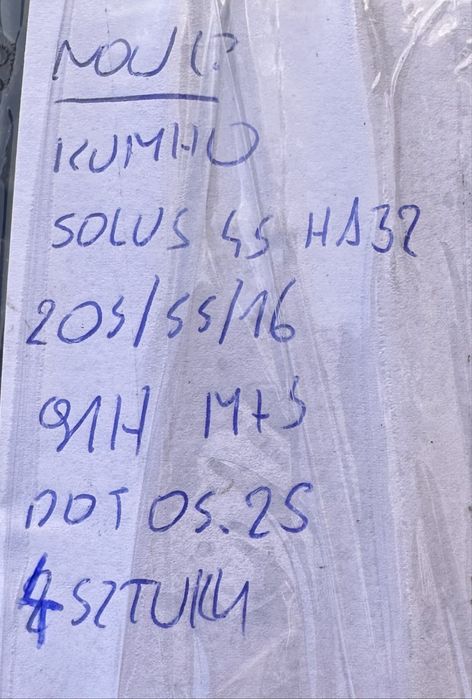 NOWE
KUMHO
SOLUS 4S HA32
205/55/16
91H M+S
DOT 05.25
4 SZTUKI